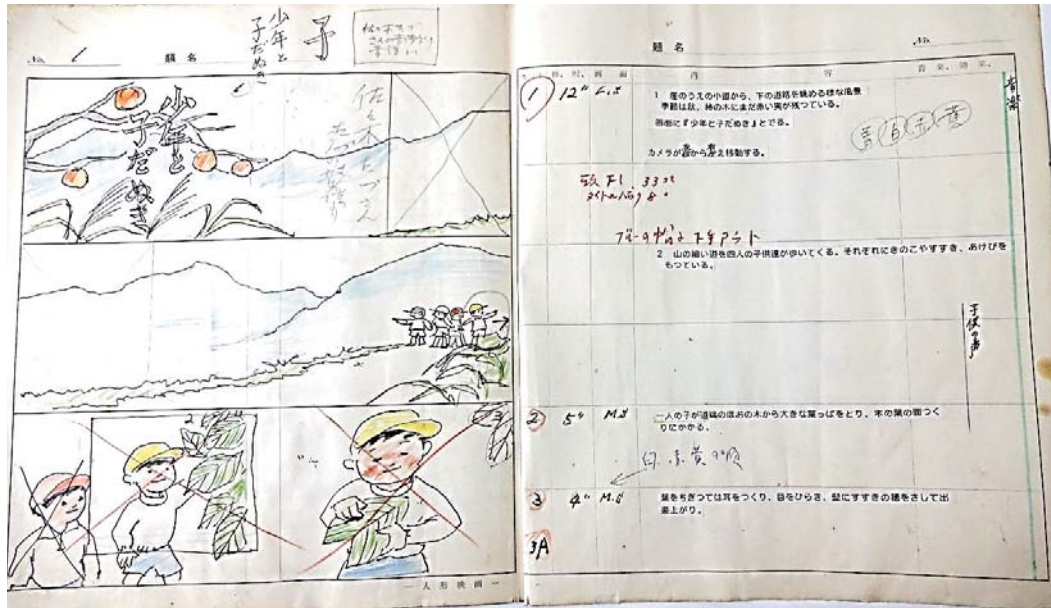 No.
題名
少年と
子だぬき
子
少年と
子だぬき
佐々木たづさん
2
3
— 人形映画 —
題名
No.
秒、尺、画面
内容
音楽、効果、
音楽
1
12" L.S
1 崖のうえの小道から、下の道路を眺める様な風景
季節は秋、柿の木にまだ赤い実が残っている。
画面に『少年と子だぬき』とでる。
青 白 赤 黄
カメラが
から
え移動する。
33
2 山の細い道を四人の子供達が歩いてくる。それぞれにきのこやすすき、あけびを
もっている。
子供の声
2
5" M.S
一人の子が道端のほおの木から大きな葉っぱをとり、木の葉の面つく
りにかかる。
白 赤 黄の順
3
4" M.S
葉をちぎっては耳をつくり、目をひらき、髭にすすきの穂をさして出
来上がり。
3A